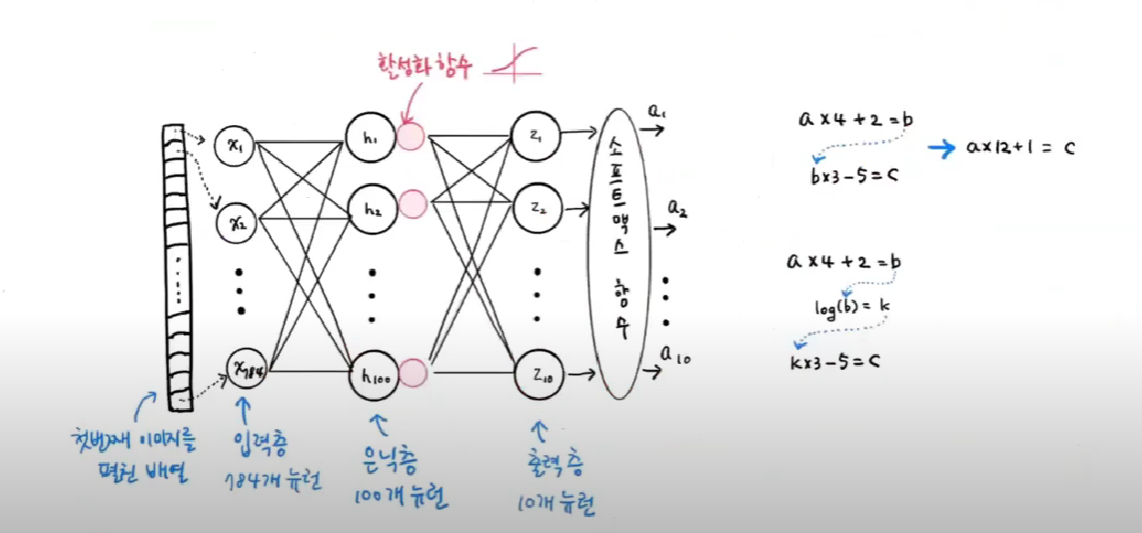 활성화 함수
x₁
x₂
x₇₈₄
h₁
h₂
h₁₀₀
z₁
z₂
z₁₀
소프트맥스 함수
a₁
a₂
a₁₀
첫번째 이미지를
펼친 배열
입력층
784개 뉴런
은닉층
100개 뉴런
출력층
10개 뉴런
a×4+2=b
b×3-5=c
→ a×12+1=c
a×4+2=b
log(b)=k
k×3-5=c